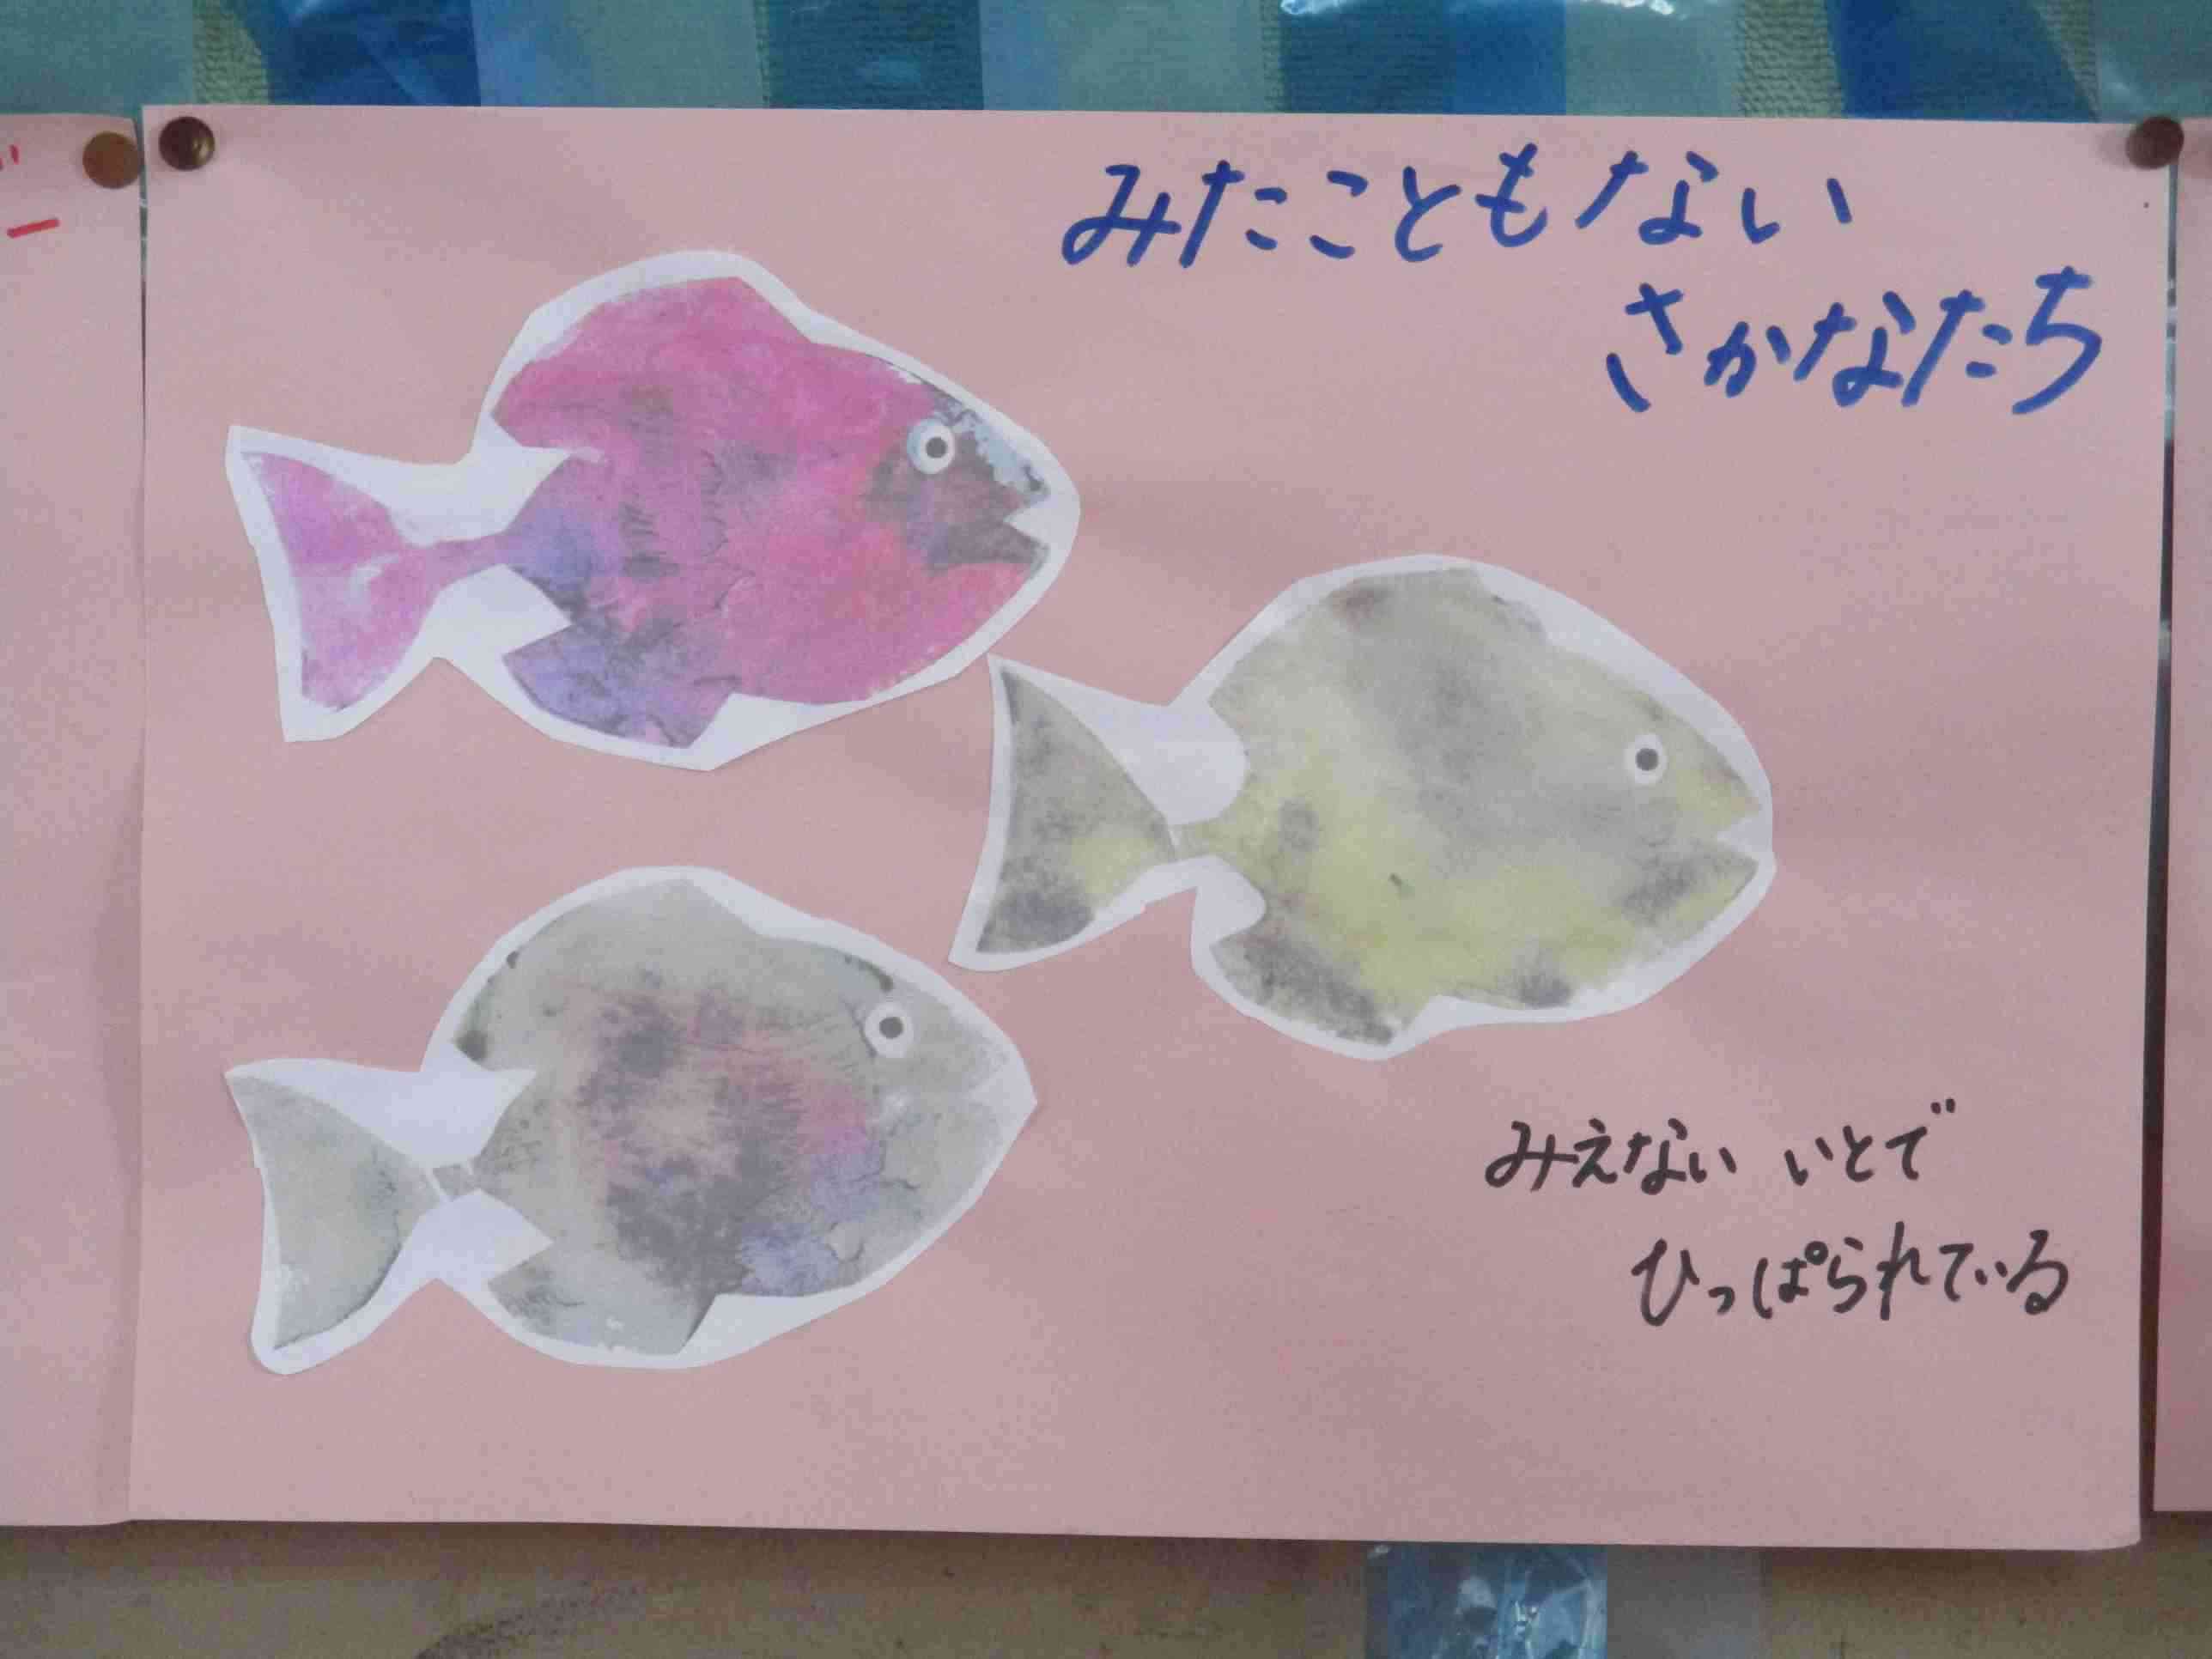 みたこともない
さかなたち
みえない いとで
ひっぱられている